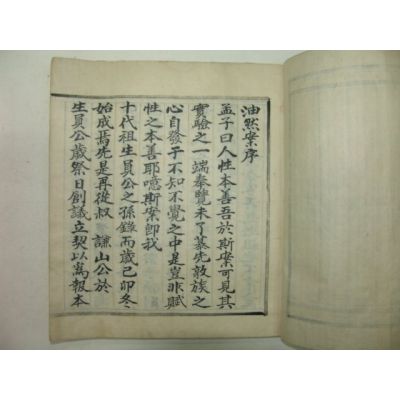 油然案序
孟子曰人性本善吾於斯案可見其
實驗之一端奉覽未了慕先敦族之
心自發于不知不覺之中是豈非賦
性之本善耶噫斯案卽我
十代祖生員公之孫錄而歲己卯冬
始成焉先是再從叔 謙山公於
生員公歲祭日創議立契以寓報本